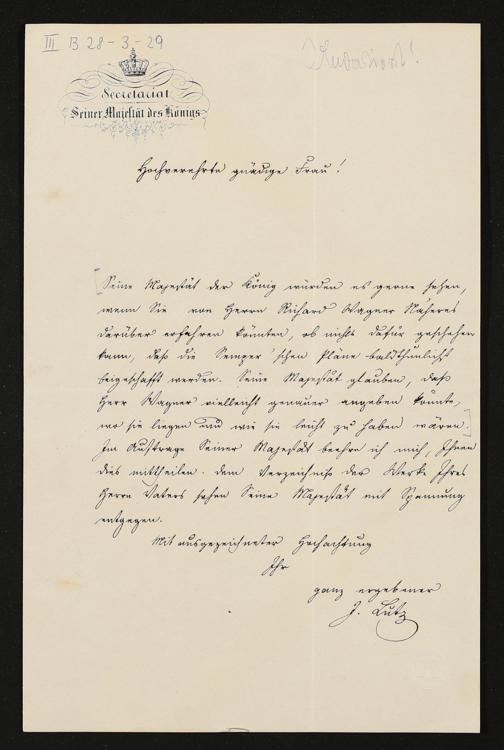 III B 28-3-29
Secretariat
Seiner Majestät des Königs
Hochverehrte gnädige Frau!
[Seine Majestät der König würden es gerne sehen,
wenn Sie von Herrn Richard Wagner Näheres
darüber erfahren könnten, ob nichts dafür geschehen
kann, daß die Semper'schen Pläne baldthunlichst
beigeschafft werden. Seine Majestät glauben, daß
Herr Wagner vielleicht genauer angeben könnte,
wo sie liegen und wie sie leicht zu haben wären.]
Im Auftrage Seiner Majestät beehre ich mich, Ihnen
dies mittheilen. Dem Verzeichniß der Werke Ihres
Herrn Vaters sehen Seine Majestät mit Spannung
entgegen.
Mit ausgezeichneter Hochachtung
Ihr
ganz ergebener
J. Lutz